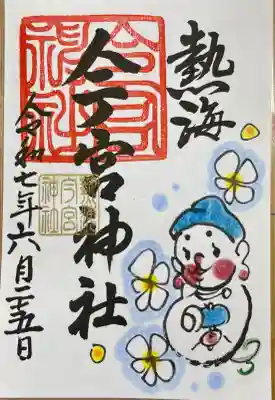 熱海
今宮神社
令和七年六月二五日
今宮
神社
熱海
今宮
神社